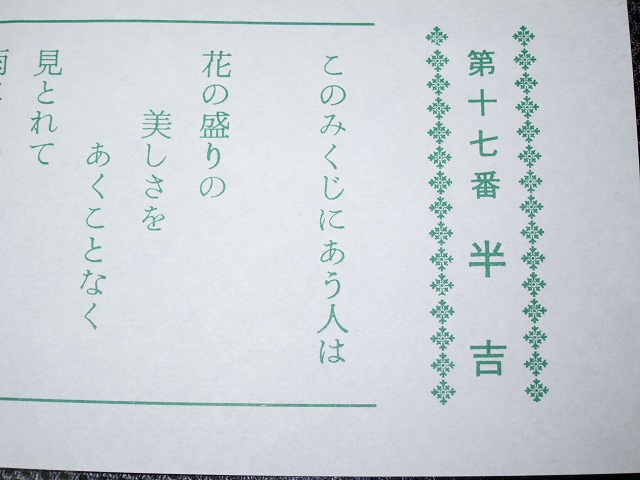 第十七番 半吉
このみくじにあう人は
花の盛りの
美しさを
あくことなく
見とれて